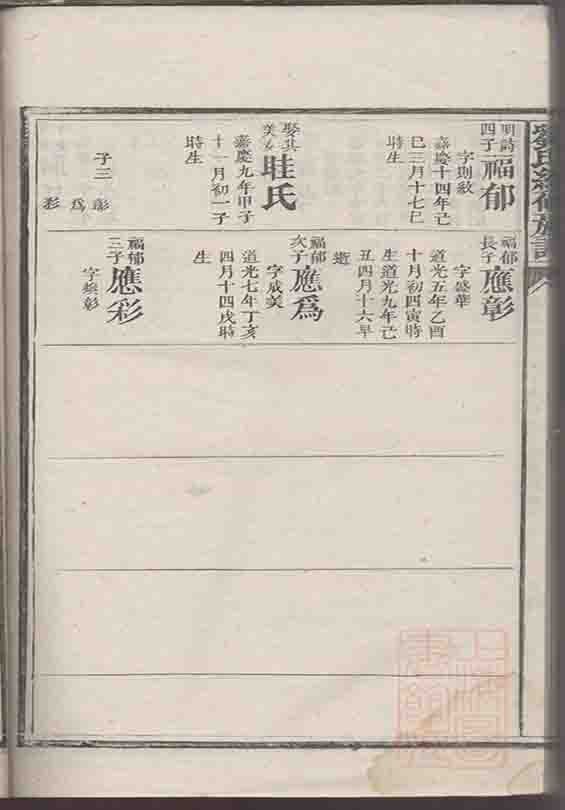 劉氏續修族譜
明詩
四子
福郁
字則紋
嘉慶十四年己
巳三月十七巳
時生
娶其
美女
眭氏
嘉慶九年甲子
十一月初一子
時生
子三
彰
為
彩
福郁
長子
應彰
字盛華
道光五年乙酉
十月初四寅時
生道光九年己
丑四月十六早
逝
福郁
次子
應為
字成美
道光七年丁亥
四月十四戌時
生
福郁
三子
應彩
字煥彰